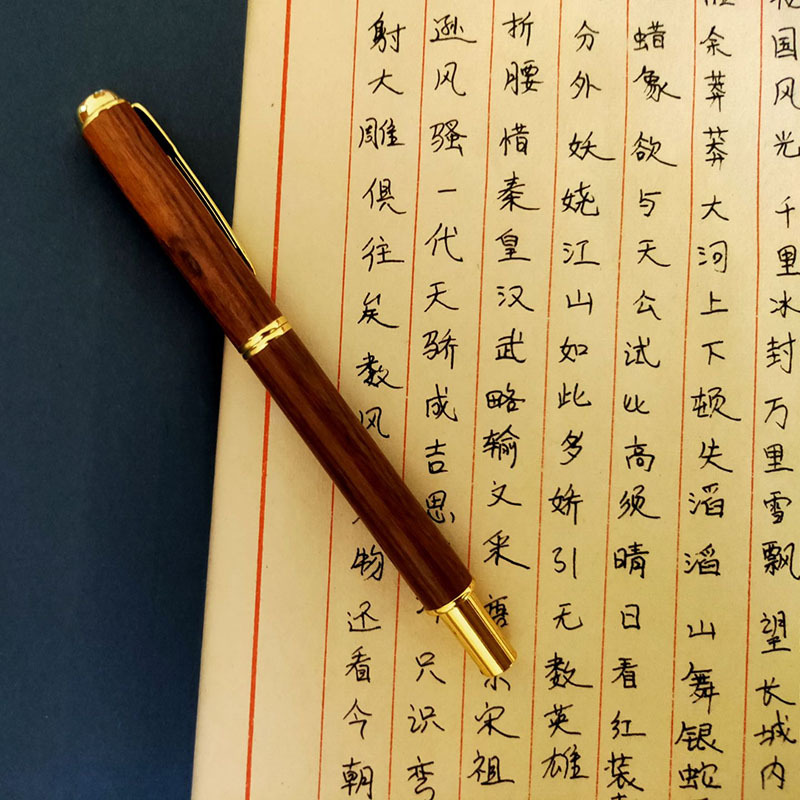 国风光千里冰封万里雪飘望长城内
余莽莽大河上下顿失滔滔山舞银蛇
蜡象欲与天公试比高须晴日看红装
分外妖娆江山如此多娇引无数英雄
折腰惜秦皇汉武略输文采唐宋祖
逊风骚一代天骄成吉思只识弯
射大雕俱往矣数风物还看今朝